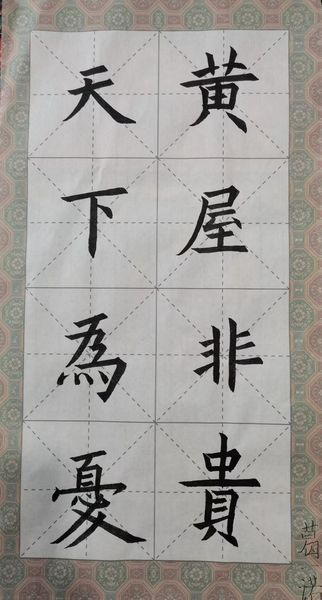 黄屋非貴
天下為憂